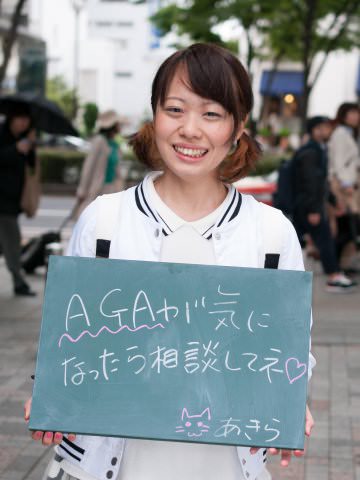 AGAが気に
なったら相談してネ♡
あきら